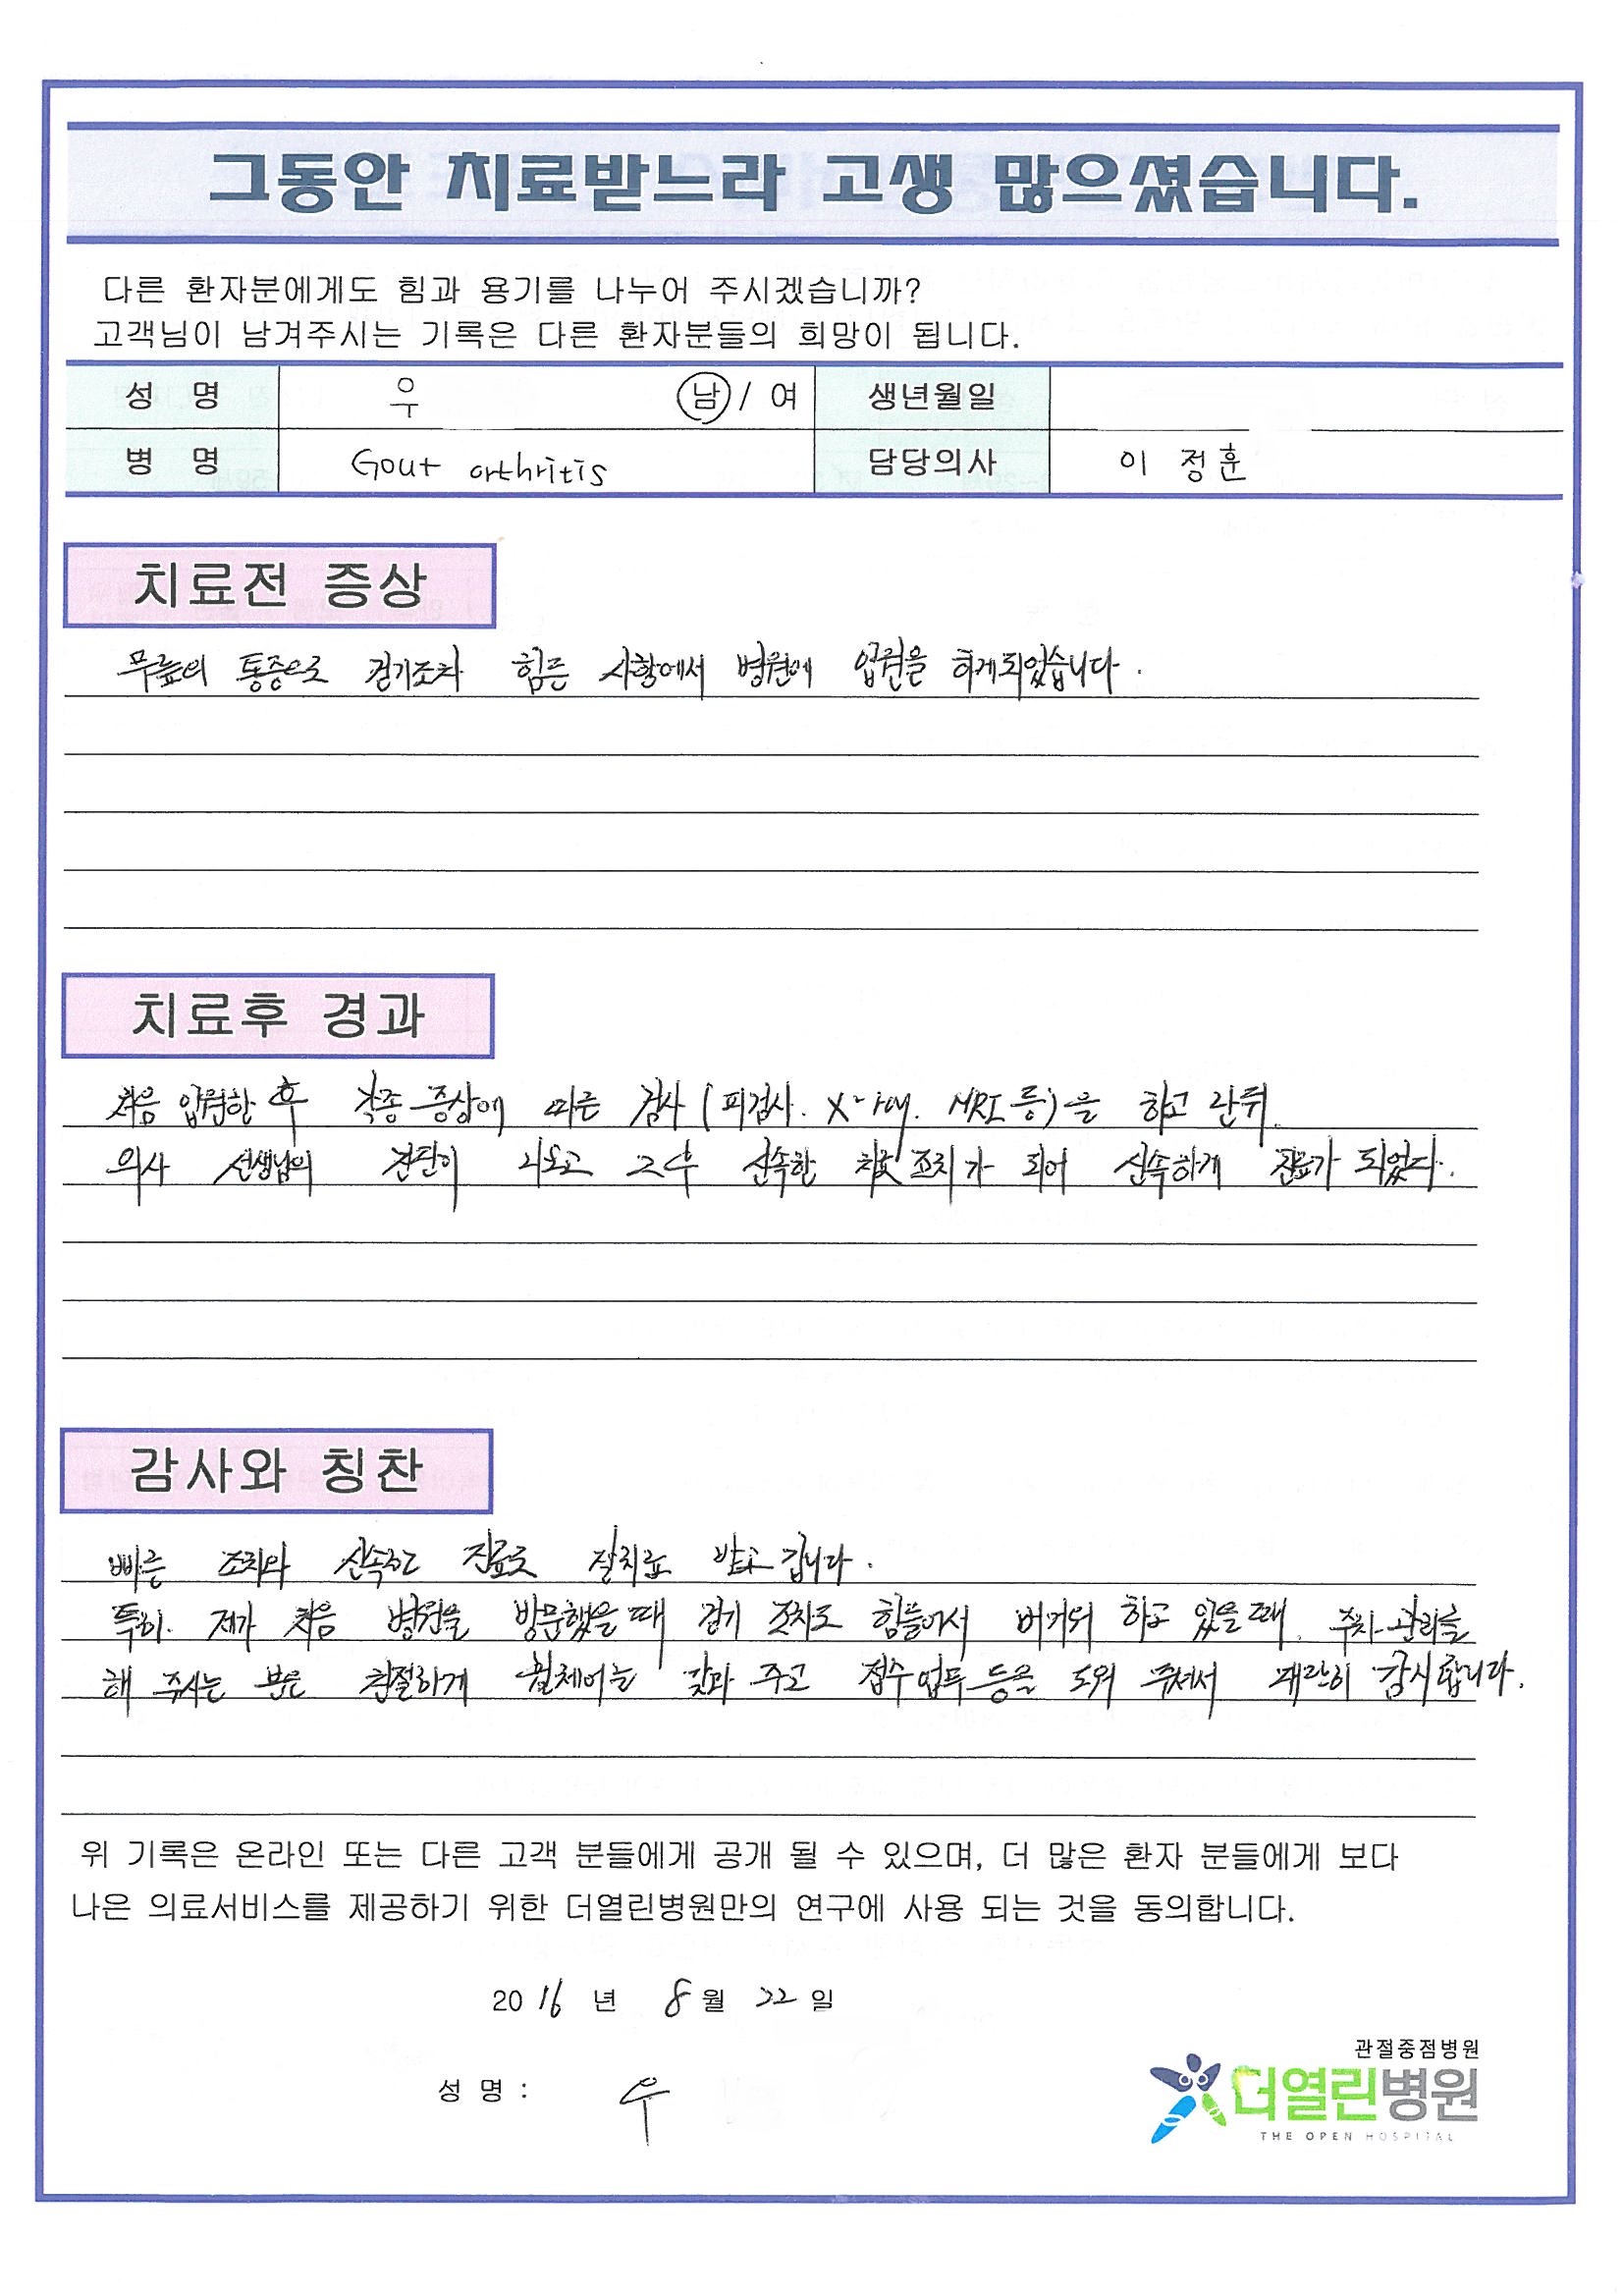 그동안 치료받느라 고생 많으셨습니다.
다른 환자분에게도 힘과 용기를 나누어 주시겠습니까?
고객님이 남겨주시는 기록은 다른 환자분들의 희망이 됩니다.
성 명 우 남 / 여 생년월일
병 명 Gout arthritis 담당의사 이 정훈
치료전 증상
무릎의 통증으로 걷기조차 힘든 상황에서 병원에 입원을 하게되었습니다.
치료후 경과
처음 입원한 후 각종 증상에 따른 검사 (피검사. X-ray. MRI 등)을 하고 난뒤
의사 선생님의 진단이 나오고 그후 신속한 조치가 되어 신속하게 진료가 되었다.
감사와 칭찬
빠른 조치와 신속한 진료로 잘치료 받고 갑니다.
특히. 제가 처음 병원을 방문했을때 걷기 조차도 힘들어서 버거워 하고 있을때. 주차관리를
해 주시는 분은 친절하게 휠체어를 갖과 주고 접수업무 등을 도와 주셔서 대단히 감사합니다.
위 기록은 온라인 또는 다른 고객 분들에게 공개 될 수 있으며, 더 많은 환자 분들에게 보다
나은 의료서비스를 제공하기 위한 더열린병원만의 연구에 사용 되는 것을 동의합니다.
2016 년 8 월 22 일
관절중점병원
성 명 : 우
더열린병원
THE OPEN HOSPITAL